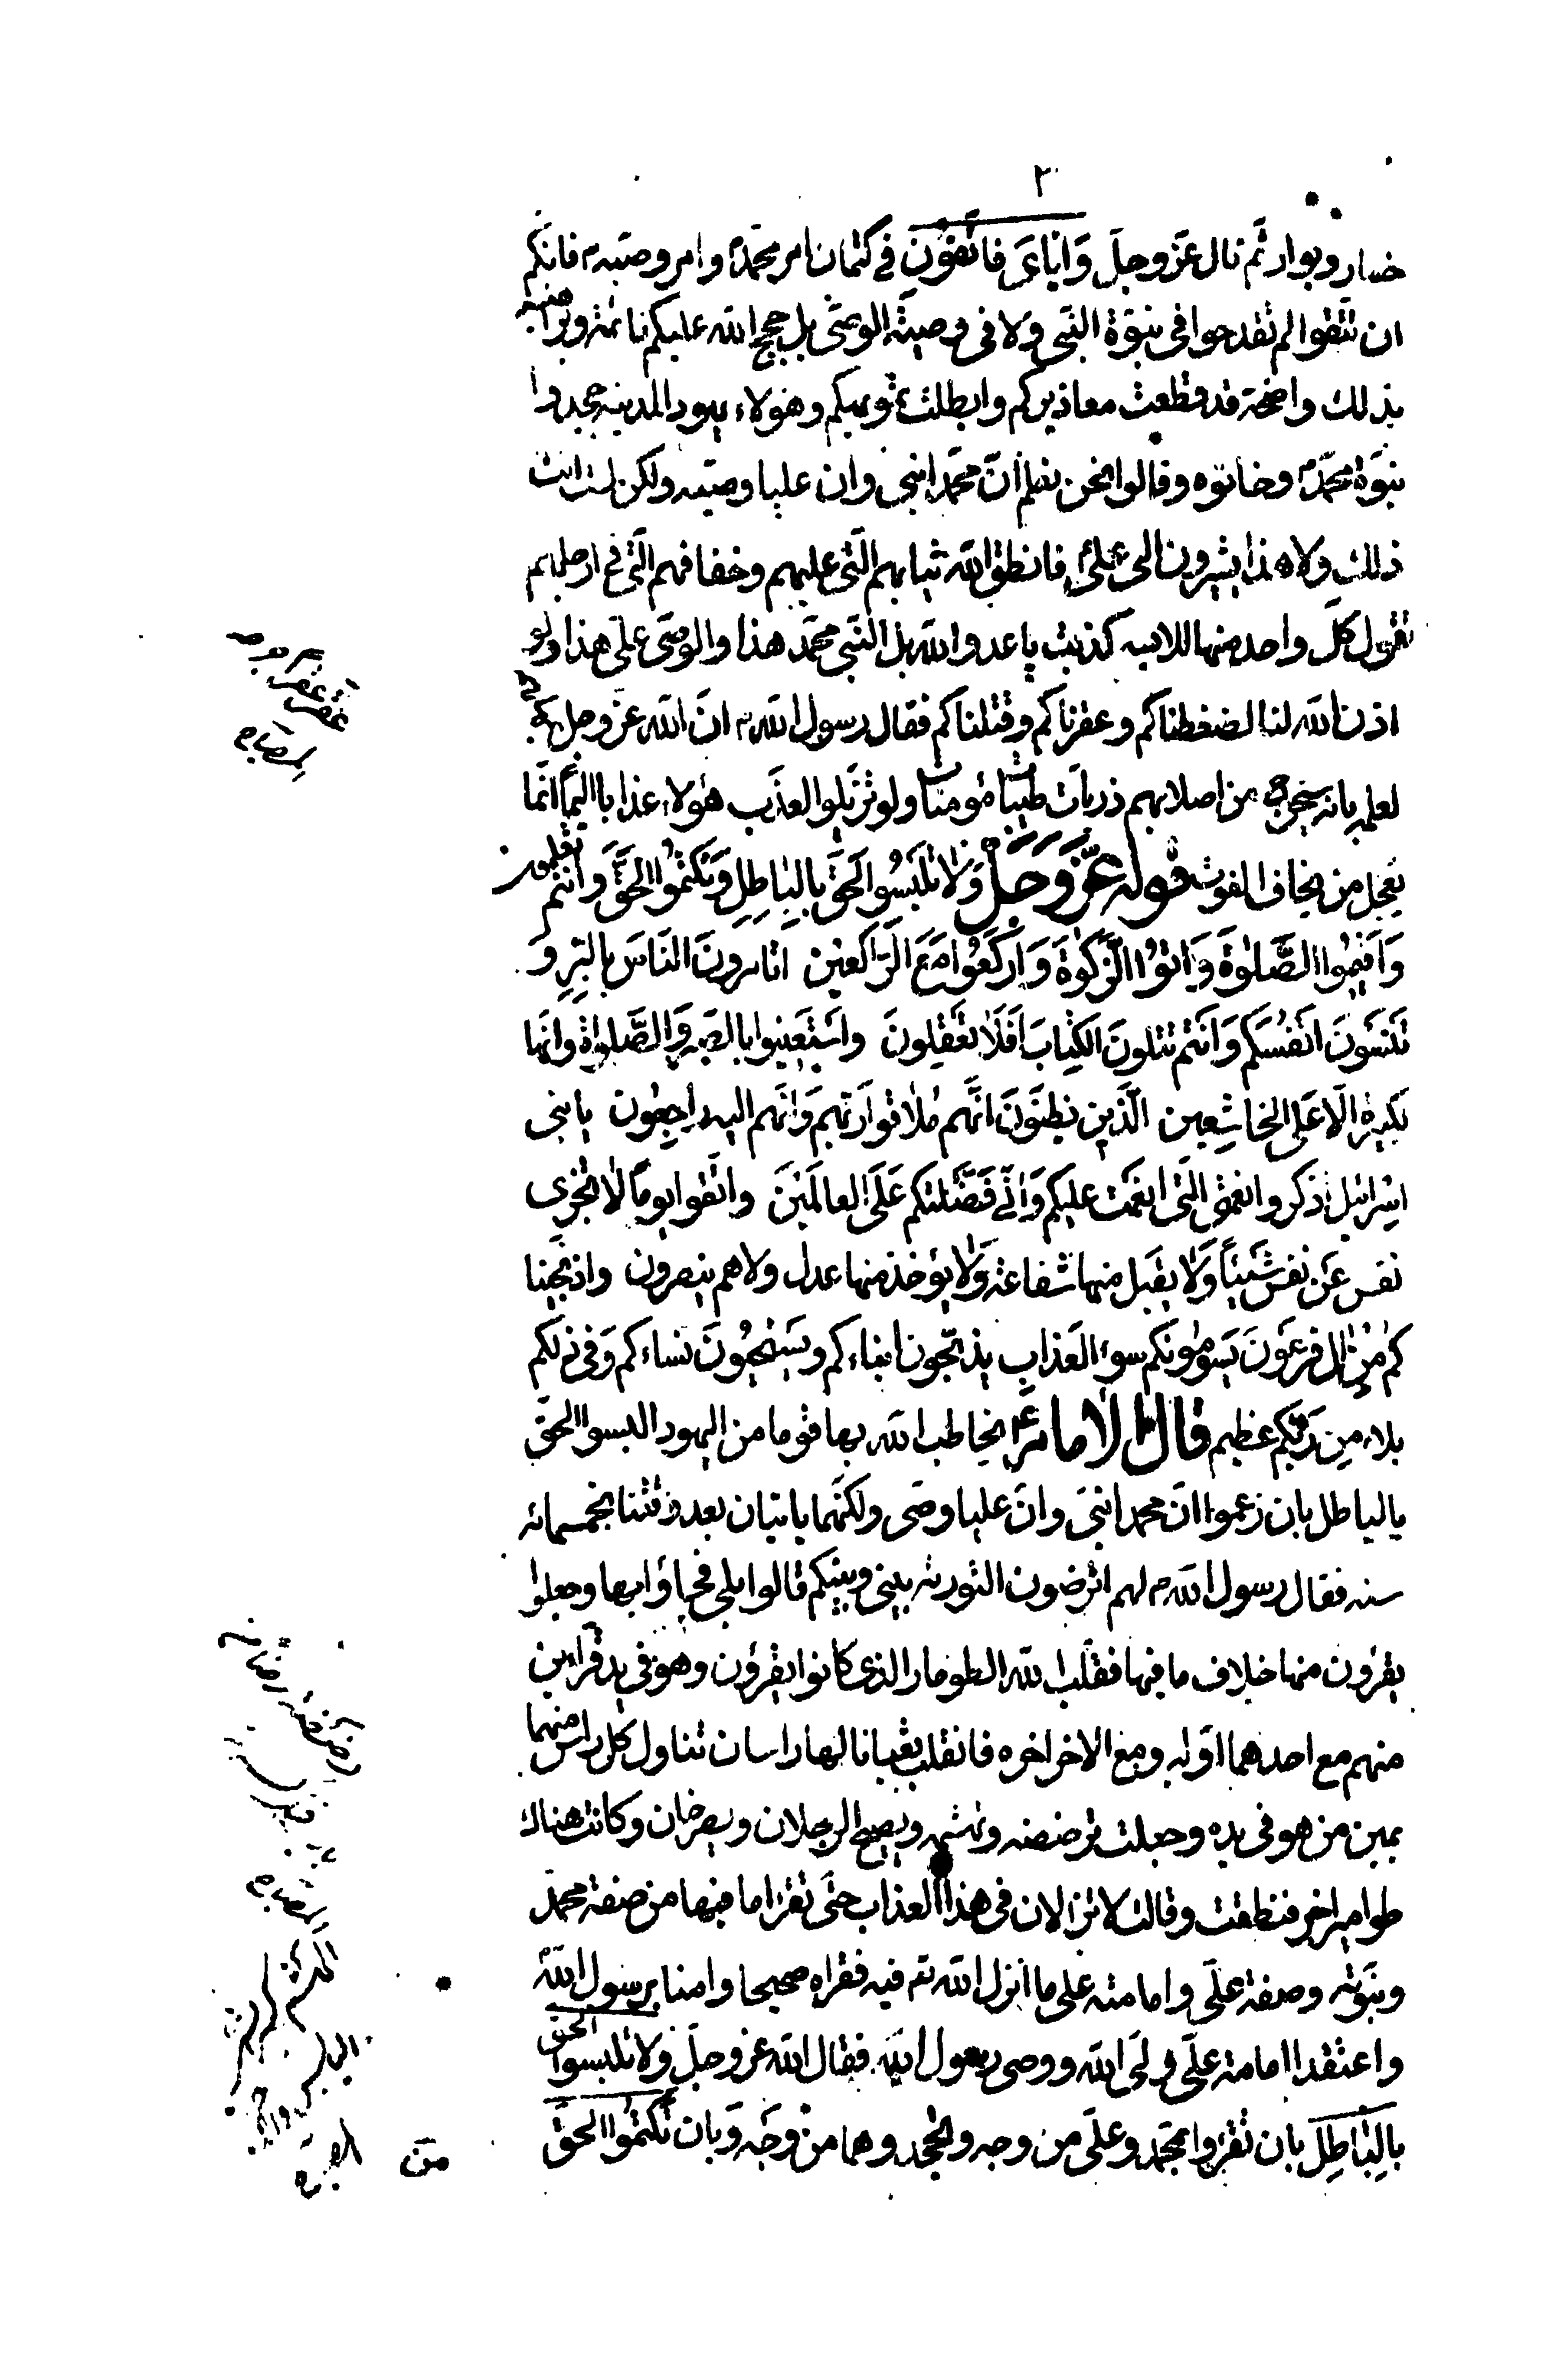 ٢
خسار وبوار ثم قال عز وجل وَاِيّاىَ فاتَّقُونِ فى كتمان امر محمد وامر وصيه فانكم
ان تتقوا لم تقدحوا فى نبوة النبى ولا فى وصية الوصى بل حجج الله عليكم قائمة وبراهينه
بذلك واضحة قد قطعت معاذيركم وابطلت تمويهكم وهؤلاء يهود المدينه جحدوا
نبوة محمد وخانوه وقالوا نحن نعلم ان محمدا نبى وان عليا وصيه ولكن لست انت
ذلك ولا هذا يشيرون الى على فانطق الله ثيابهم التى عليهم وخفافهم التى فى ارجلهم
تقول كل واحد منها للابسه كذبت يا عدو الله بل النبى محمد هذا والوصى على هذا ولو
اذن الله لنا لضغطناكم وعقرناكم وقتلناكم فقال رسول الله ان الله عز وجل
لعلمه بانه سيخرج من اصلابهم ذريات طيبات مؤمنات ولو تزيلوا لعذب هؤلاء عذابا اليما انما
يعجل من يخاف الفوت قوله عز وجل وَلا تَلْبِسُوا الحَقَّ بِالباطِلِ وَتَكْتُمُوا الحَقَّ وَاَنْتُم تعلمون
وَاَقيمُوا الصَّلوةَ وَاتُوا الزَّكوةَ وَارْكَعُوا مَعَ الرّاكعين اتامرونَ النّاسَ بِالبِرِّ وَ
تَنْسَوْنَ اَنْفُسَكُم وَاَنْتُم تتلونَ الكِتابَ اَفَلا تَعْقِلُونَ واسْتَعينوا بالصبر وَالصَّلوةِ وانَّها
لكبيرة الّا عَلَى الخاشِعين الّذين يظنّونَ انَّهم مُلاقوا رَبِّهِم وَانَّهم اليه راجِعُون يا بنى
اسرائيل اذكروا نعمتى التى انعمت عليكم وَانّى فَضَّلتُكم عَلَى العالَمينَ واتَّقوا يومًا لا تجزى
نفس عَن نفس شَيئًا وَلا يقبل منها شفاعة وَلا يؤخذ منها عدل ولا هم ينصرون واذ نجينا
كم مِن ال فرعَونَ يَسومُونَكم سوء العَذابِ يذبحون ابناءكم ويستحيُونَ نساءكم وَفى ذلكم
بلاء مِن رَبِّكم عظيم قال الامام خاطب الله بها قوما من اليهود البسوا الحق
بالباطل بان زعموا ان محمدا نبى وان عليا وصى ولكنهما ياتيان بعد وقتنا بخمسمائه
سنه فقال رسول الله لهم اترضون التورية بينى وبينكم قالوا بلى فجاؤا بها وجعلوا
يقرؤن منها خلاف ما فيها فقلب الله الطومار الذى كانوا يقرؤن وهو فى يد قراءين
منهم مع احدهما اوله ومع الاخر اخره فانقلب ثعبانا لها راسان تناول كل راس منهما
يمين من هو فى يده وجعلت ترضضه وتهشمه ويصيح الرجلان ويصرخان وكانت هناك
طوامير اخر فنطقت وقالت لا تزالان فى هذا العذاب حتى تقرا ما فيها من صفة محمد
ونبوته وصفة على وامامته على ما انزل الله تع فيه فقراه صحيحا وامنا برسول الله
واعتقدا امامة على ولى الله ووصى رسول الله فقال الله عز وجل ولا تلبسوا الحق
بِالباطِلِ بان تقروا بمحمد وعلى من وجه وتجحدوهما من وجه وَبان تَكتُموا الحق
من